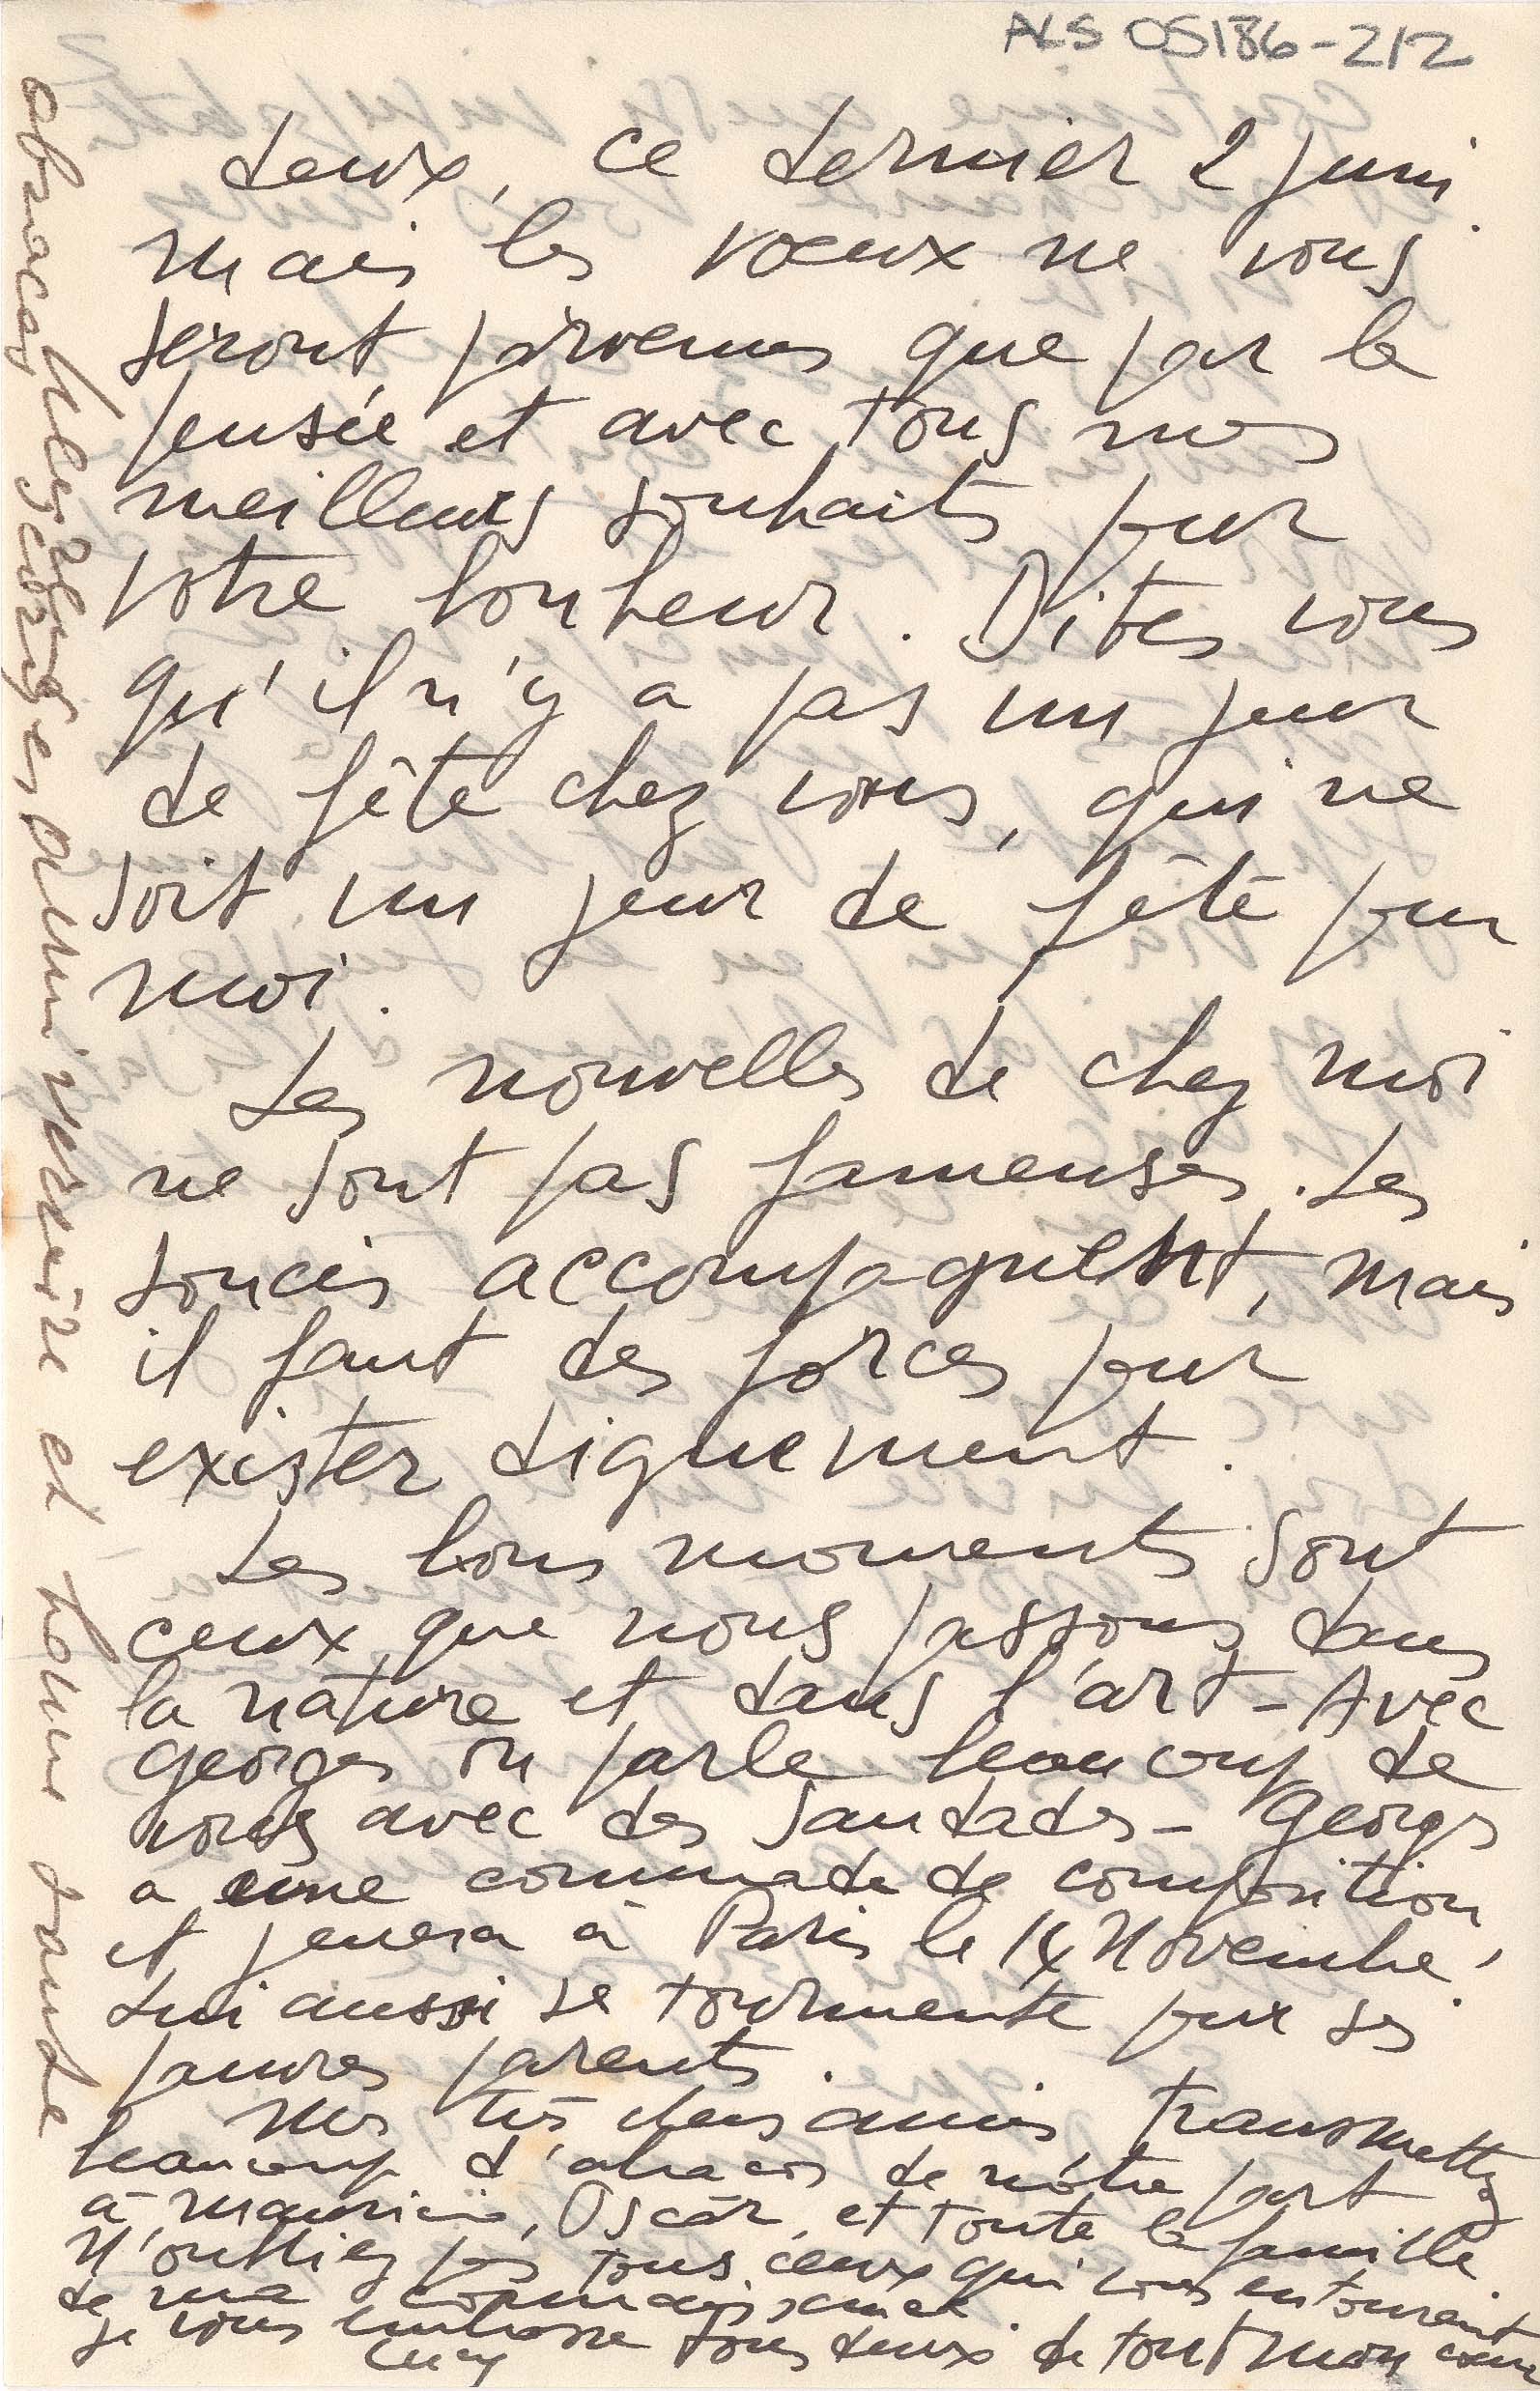 ALS 05186-212
deux, ce dernier 2 juin.
mais les voeux ne vous
seront parvenus que par la
pensée et avec tous mes
meilleurs souhaits pour
votre bonheur. Dites vous
qu'il n'y a pas un jour
de fête chez vous, qui ne
soit un jour de fête pour
moi.
Les nouvelles de chez moi
ne sont pas fameuses. Les
soucis accompagnent, mais
il faut des forces pour
exister dignement.
Les bons moments sont
ceux que nous passons dans
la nature et dans l'art - Avec
Georges on parle beaucoup de
vous avec des saudades - Georges
a une commade de composition
et jouera à Paris le 14 Novembre.
Lui aussi se tourmente pour ses
pauvres parents.
Mes très chers amis, transmettez
beaucoup d'abraços de nôtre part
à Mauricio, Oscar, et toute la famille.
N'oubliez pas tous ceux qui vous entourent
de ma connaissance.
Je vous embrasse tous deux de tout mon coeur
Lucy
abraça Georges anniversaire et